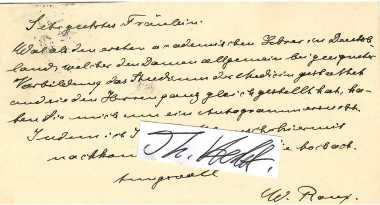 Sehr geehrtes Fräulein!
Wol als den ersten akademischen Lehrer in Deutsch-
land, welcher den Damen allgemein bei geeigneter
Vorbildung das Studium der Medicin gestattet
und sie den Herren ganz gleich gestellt hat, ha-
ben Sie mich um ein Autogramm ersucht.
Indem ich hiermit
nachkom
W. Roux.